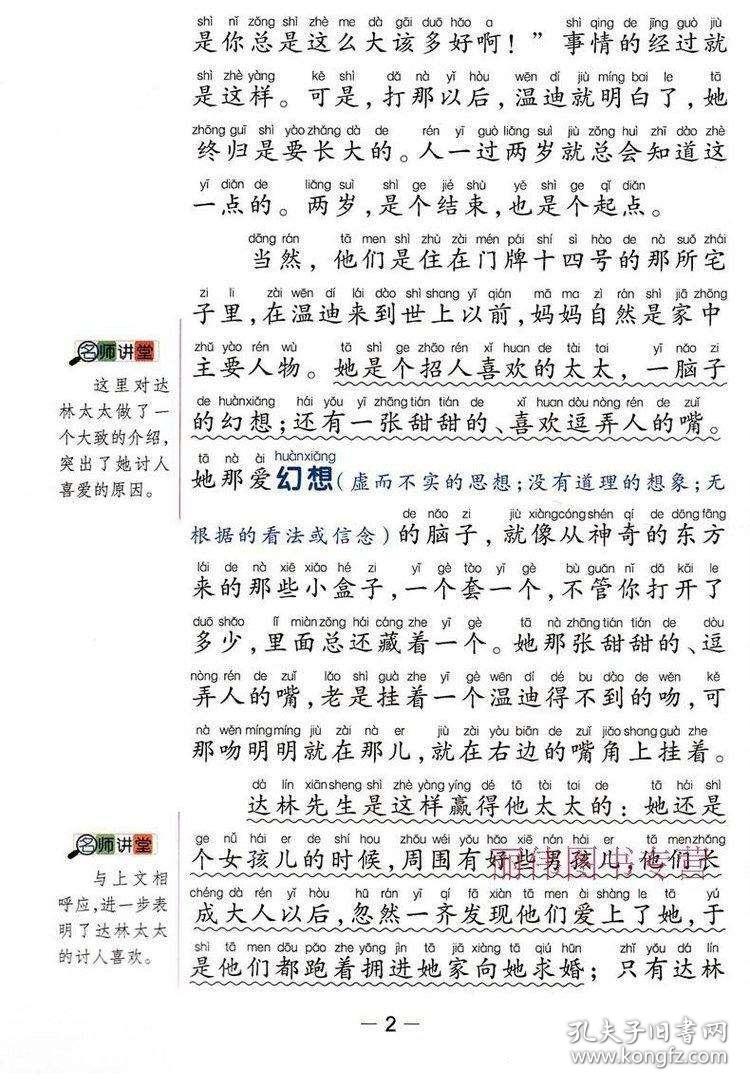 shì nǐ zǒng shì zhè me dà gāi duō hǎo a shì qing de jīng guò jiù
是你总是这么大该多好啊！”事情的经过就
shì zhè yàng kě shì dǎ nà yǐ hòu wēn dí jiù míng bai le tā
是这样。可是，打那以后，温迪就明白了，她
zhōng guī shì yào zhǎng dà de rén yī guò liǎng suì jiù zǒng huì zhī dào zhè
终归是要长大的。人一过两岁就总会知道这
yī diǎn de liǎng suì shì ge jié shù yě shì ge qǐ diǎn
一点的。两岁，是个结束，也是个起点。
dāng rán tā men shì zhù zài mén pái shí sì hào de nà suǒ zhái
当然，他们是住在门牌十四号的那所宅
zi li zài wēn dí lái dào shì shang yǐ qián mā ma zì rán shì jiā zhōng
子里，在温迪来到世上以前，妈妈自然是家中
zhǔ yào rén wù tā shì ge zhāo rén xǐ huan de tài tai yī nǎo zi
主要人物。她是个招人喜欢的太太，一脑子
de huàn xiǎng hái yǒu yī zhāng tián tián de xǐ huan dòu nòng rén de zuǐ
的幻想；还有一张甜甜的、喜欢逗弄人的嘴。
名师讲堂
这里对达
林太太做了一
个大致的介绍，
突出了她讨人
喜爱的原因。
tā nà ài huàn xiǎng
她那爱幻想（虚而不实的思想；没有道理的想象；无
de nǎo zi jiù xiàng cóng shén qí de dōng fāng
根据的看法或信念）的脑子，就像从神奇的东方
lái de nà xiē xiǎo hé zi yī gè tào yī gè bù guǎn nǐ dǎ kāi le
来的那些小盒子，一个套一个，不管你打开了
duō shǎo lǐ miàn zǒng hái cáng zhe yī gè tā nà zhāng tián tián de dòu
多少，里面总还藏着一个。她那张甜甜的、逗
nòng rén de zuǐ lǎo shì guà zhe yī gè wēn dí dé bu dào de wěn kě
弄人的嘴，老是挂着一个温迪得不到的吻，可
nà wěn míng míng jiù zài nà er jiù zài yòu biān de zuǐ jiǎo shang guà zhe
那吻明明就在那儿，就在右边的嘴角上挂着。
dá lín xiān sheng shì zhè yàng yíng dé tā tài tai de tā hái shì
达林先生是这样赢得他太太的：她还是
ge nǚ hái er de shí hou zhōu wéi yǒu hǎo xiē nán hái er tā men zhǎng
个女孩儿的时候，周围有好些男孩儿，他们长
chéng dà rén yǐ hòu hū rán yī qí fā xiàn tā men ài shàng le tā yú
成大人以后，忽然一齐发现他们爱上了她，于
shì tā men dōu pǎo zhe yōng jìn tā jiā xiàng tā qiú hūn zhǐ yǒu dá lín
是他们都跑着拥进她家向她求婚；只有达林
名师讲堂
与上文相
呼应，进一步表
明了达林太太
的讨人喜欢。
丽伟图书专营
—2—
孔夫子旧书网
www.kongfz.com